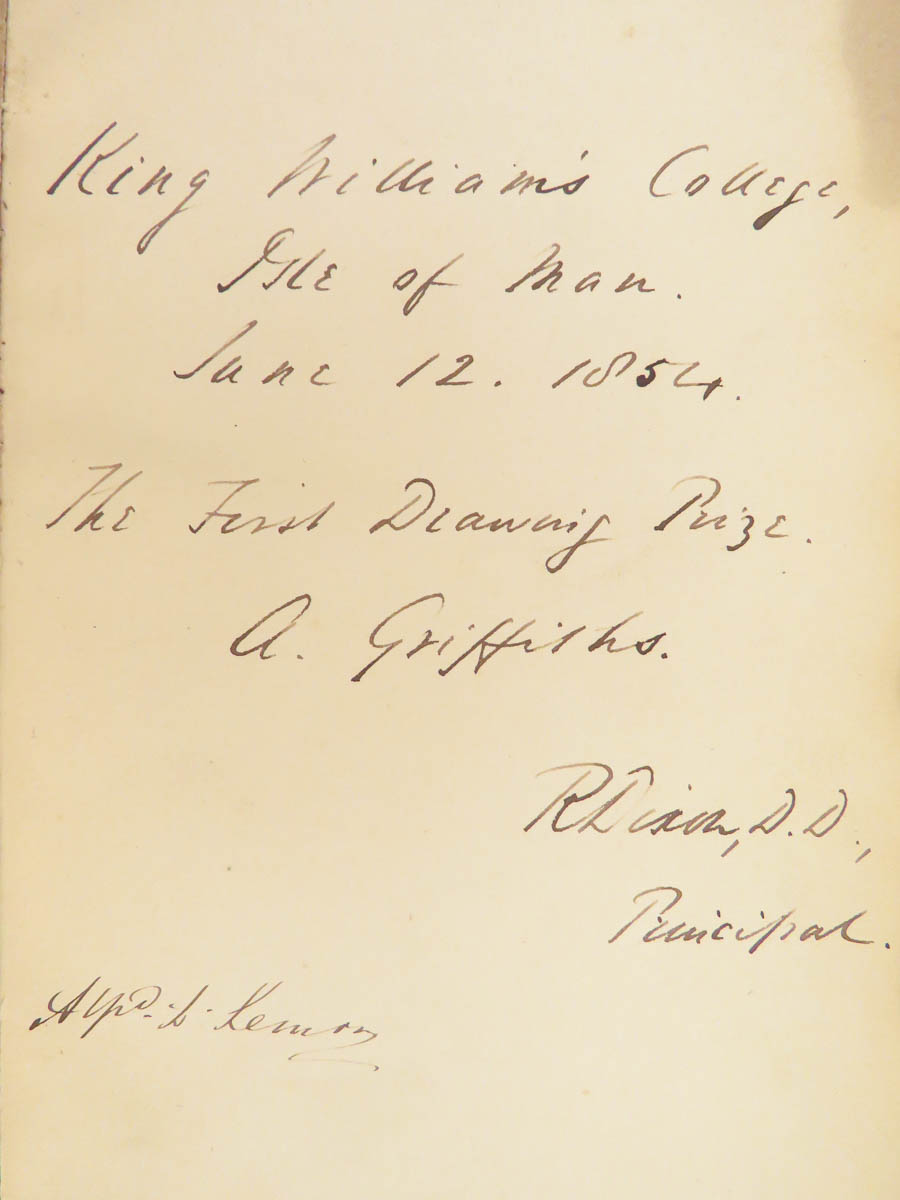 King William's College,
Isle of Man.
June 12. 1854.
The First Drawing Prize.
A. Griffiths.
R Dixon, D.D.,
Principal.
Alfd. L.